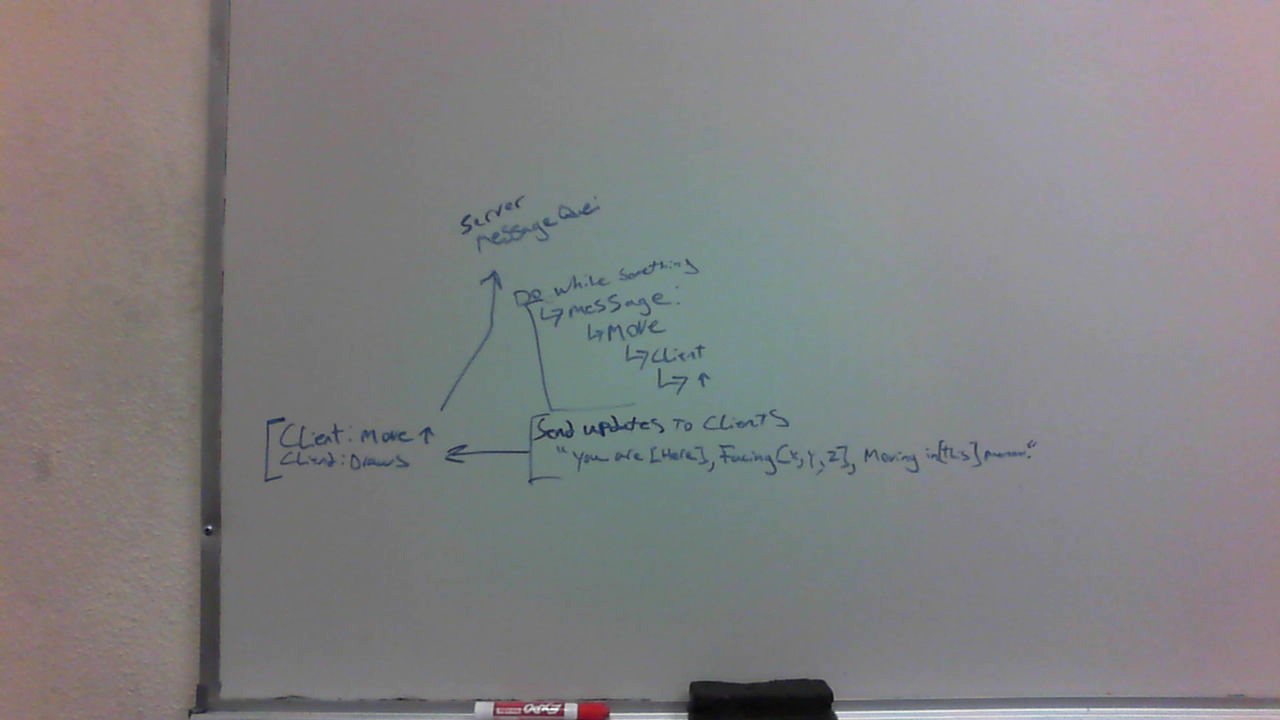 Server
messageQuei
Do while something
↳ message:
↳ Move
↳ Client
↳ ↑
Client: Move ↑
Client: Draws
Send updates To Clients
"You are [Here], Facing [X, Y, Z], Moving in [this]
EXPO